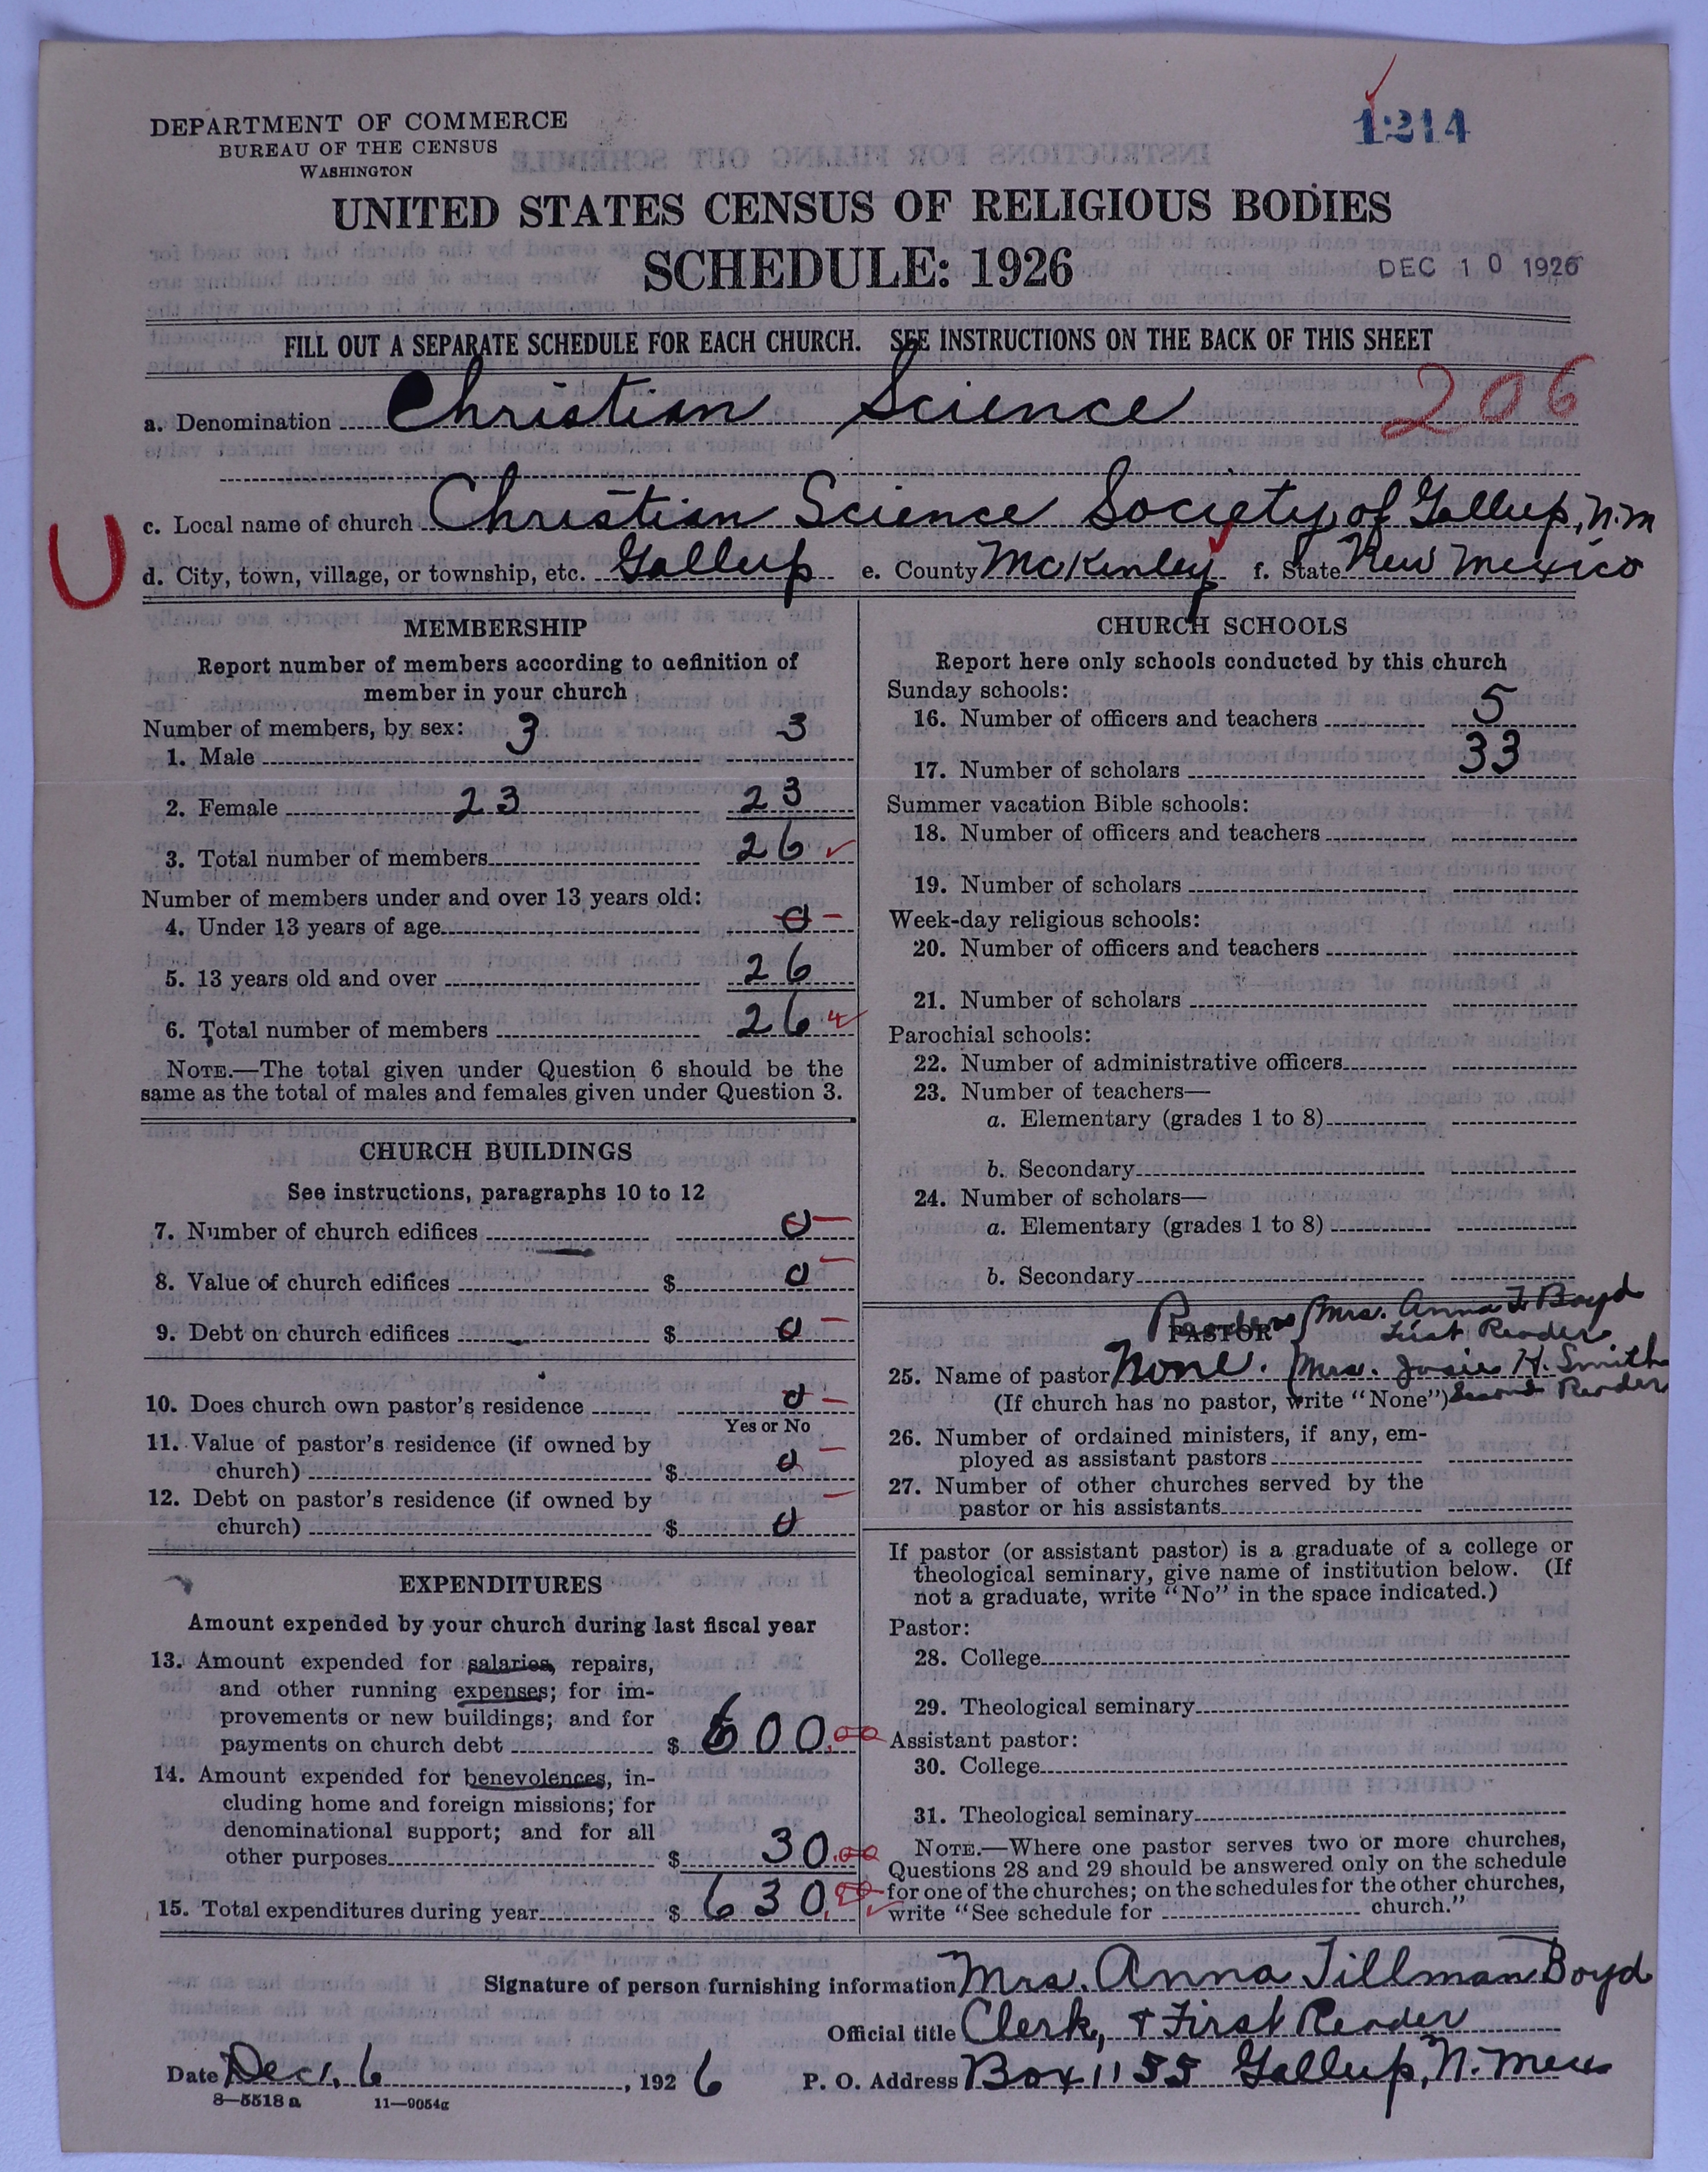 DEPARTMENT OF COMMERCE
BUREAU OF THE CENSUS
WASHINGTON
1214
UNITED STATES CENSUS OF RELIGIOUS BODIES
SCHEDULE: 1926
DEC 10 1926
FILL OUT A SEPARATE SCHEDULE FOR EACH CHURCH. SEE INSTRUCTIONS ON THE BACK OF THIS SHEET
a. Denomination Christian Science 206
U c. Local name of church Christian Science Society, of Gallup, N.M
d. City, town, village, or township, etc. Gallup e. County McKinley f. State New Mexico
MEMBERSHIP
Report number of members according to definition of
member in your church
Number of members, by sex: 3 3
1. Male
2. Female 23 23
3. Total number of members 26
Number of members under and over 13 years old:
4. Under 13 years of age 0
5. 13 years old and over 26
6. Total number of members 26
NOTE.—The total given under Question 6 should be the
same as the total of males and females given under Question 3.
CHURCH BUILDINGS
See instructions, paragraphs 10 to 12
7. Number of church edifices 0
8. Value of church edifices $ 0
9. Debt on church edifices $ 0
10. Does church own pastor's residence 0
Yes or No
11. Value of pastor's residence (if owned by
church) $ 0
12. Debt on pastor's residence (if owned by
church) $ 0
EXPENDITURES
Amount expended by your church during last fiscal year
13. Amount expended for salaries, repairs,
and other running expenses; for im-
provements or new buildings; and for
payments on church debt $ 600.00
14. Amount expended for benevolences, in-
cluding home and foreign missions; for
denominational support; and for all
other purposes $ 30.00
15. Total expenditures during year $ 630.00
CHURCH SCHOOLS
Report here only schools conducted by this church
Sunday schools:
16. Number of officers and teachers 5
17. Number of scholars 33
Summer vacation Bible schools:
18. Number of officers and teachers
19. Number of scholars
Week-day religious schools:
20. Number of officers and teachers
21. Number of scholars
Parochial schools:
22. Number of administrative officers
23. Number of teachers—
a. Elementary (grades 1 to 8)
b. Secondary
24. Number of scholars—
a. Elementary (grades 1 to 8)
b. Secondary
Readers Mrs. Anna T. Boyd
PASTOR First Reader
25. Name of pastor None. Mrs. Josie H. Smith
(If church has no pastor, write "None") Second Reader
26. Number of ordained ministers, if any, em-
ployed as assistant pastors
27. Number of other churches served by the
pastor or his assistants
If pastor (or assistant pastor) is a graduate of a college or
theological seminary, give name of institution below. (If
not a graduate, write "No" in the space indicated.)
Pastor:
28. College
29. Theological seminary
Assistant pastor:
30. College
31. Theological seminary
NOTE.—Where one pastor serves two or more churches,
Questions 28 and 29 should be answered only on the schedule
for one of the churches; on the schedules for the other churches,
write "See schedule for church."
Signature of person furnishing information Mrs. Anna Tillman Boyd
Official title Clerk, + First Reader
Date Dec. 6, 1926 P. O. Address Box 1155 Gallup, N. Mex
8—5518 a 11—9054g